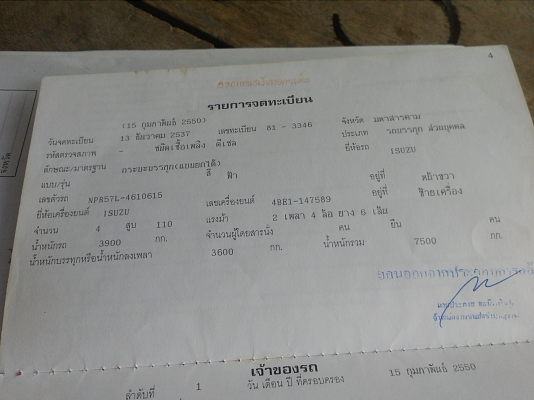 4
รายการจดทะเบียน
(15 กุมภาพันธ์ 2550)
วันจดทะเบียน 13 ธันวาคม 2537 เลขทะเบียน 81 - 3346 จังหวัด มหาสารคาม
รหัสตรวจสภาพ - ชนิดเชื้อเพลิง ดีเซล ประเภท รถบรรทุก ส่วนบุคคล
ลักษณะ/มาตรฐาน กระบะบรรทุก(แบบยกได้) ยี่ห้อรถ ISUZU
แบบ/รุ่น สี ฟ้า
เลขตัวรถ NPR57L-4610615 อยู่ที่ หน้าขวา
ยี่ห้อเครื่องยนต์ ISUZU เลขเครื่องยนต์ 4BE1-147589 อยู่ที่ ซ้ายเครื่อง
จำนวน 4 สูบ 110 แรงม้า 2 เพลา 4 ล้อ ยาง 6 เส้น
น้ำหนักรถ 3900 กก. จำนวนผู้โดยสารนั่ง คน ยืน คน
น้ำหนักบรรทุกหรือน้ำหนักลงเพลา 3600 กก. น้ำหนักรวม 7500 กก.
เจ้าของรถ
ลำดับที่ 1 วัน เดือน ปี ที่ครอบครอง 15 กุมภาพันธ์ 2550
จังหวัด